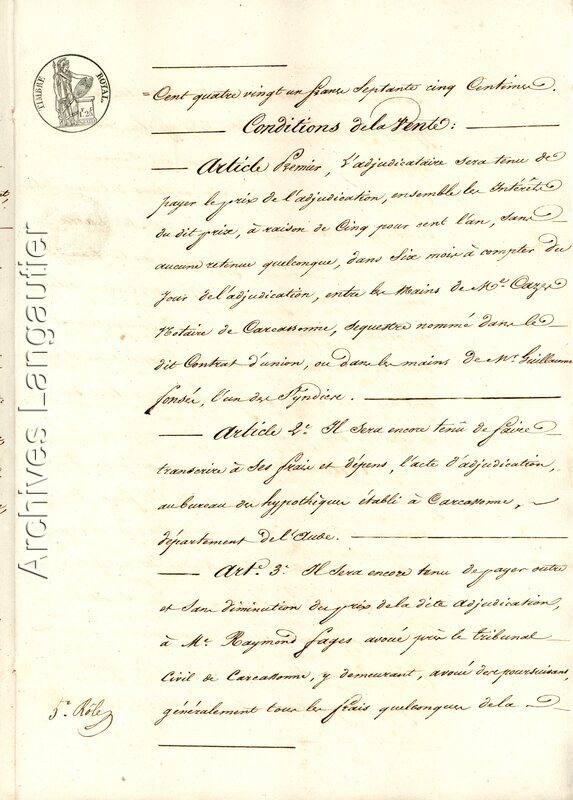 TIMBRE ROYAL
Cent quatre vingt un francs Septante cinq Centimes.
Conditions de la Vente:
Article Premier, L'adjudicataire sera tenu de
payer le prix de l'adjudication, ensemble les Intérêts
du dit prix, à raison de Cinq pour cent l'an, sans
aucune retenue quelconque, dans Six mois à compter du
Jour de l'adjudication, entre les Mains de Me. Cazes
Notaire de Carcassonne, sequestre nommé dans le
dit Contrat d'union, ou dans les mains de Mr. Guillaume
fonsés, l'un des Syndics.
Article 2e. Il Sera encore tenu de faire
transcrire à Ses frais et dépens, l'acte d'adjudication,
au bureau des hypothèques établi à Carcassonne,
département de l'Aude.
Arte. 3e. Il Sera encore tenu de payer outre
et Sans diminution du prix de la dite adjudication,
à Me. Raymond fages avoué près le tribunal
Civil de Carcassonne, y demeurant, avoué des poursuivans,
généralement tous les frais quelconques de la
5e. Rôle
Archives Langautier